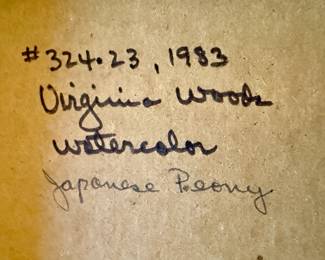 #324.23, 1983
Virginia Woods
watercolor
Japanese Peony